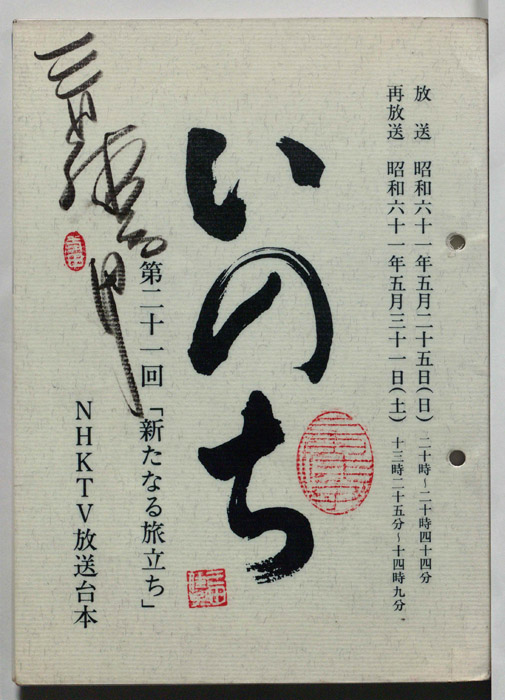 放　送　昭和六十一年五月二十五日(日)　二十時～二十時四十四分
再放送　昭和六十一年五月三十一日(土)　十三時二十五分～十四時九分
いのち
第二十一回「新たなる旅立ち」
NHKTV放送台本